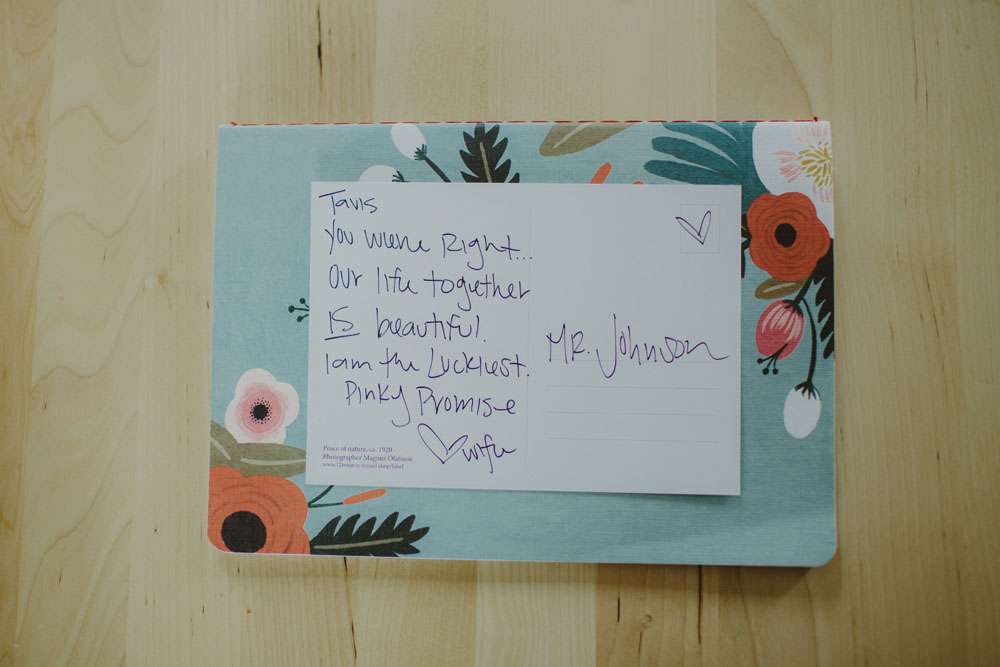 Tavis
You were Right...
Our life together
IS beautiful.
I am the Luckiest.
Pinky Promise
wife
Peace of nature, ca. 1920
Photographer Magnús Ólafsson
MR. Johnson